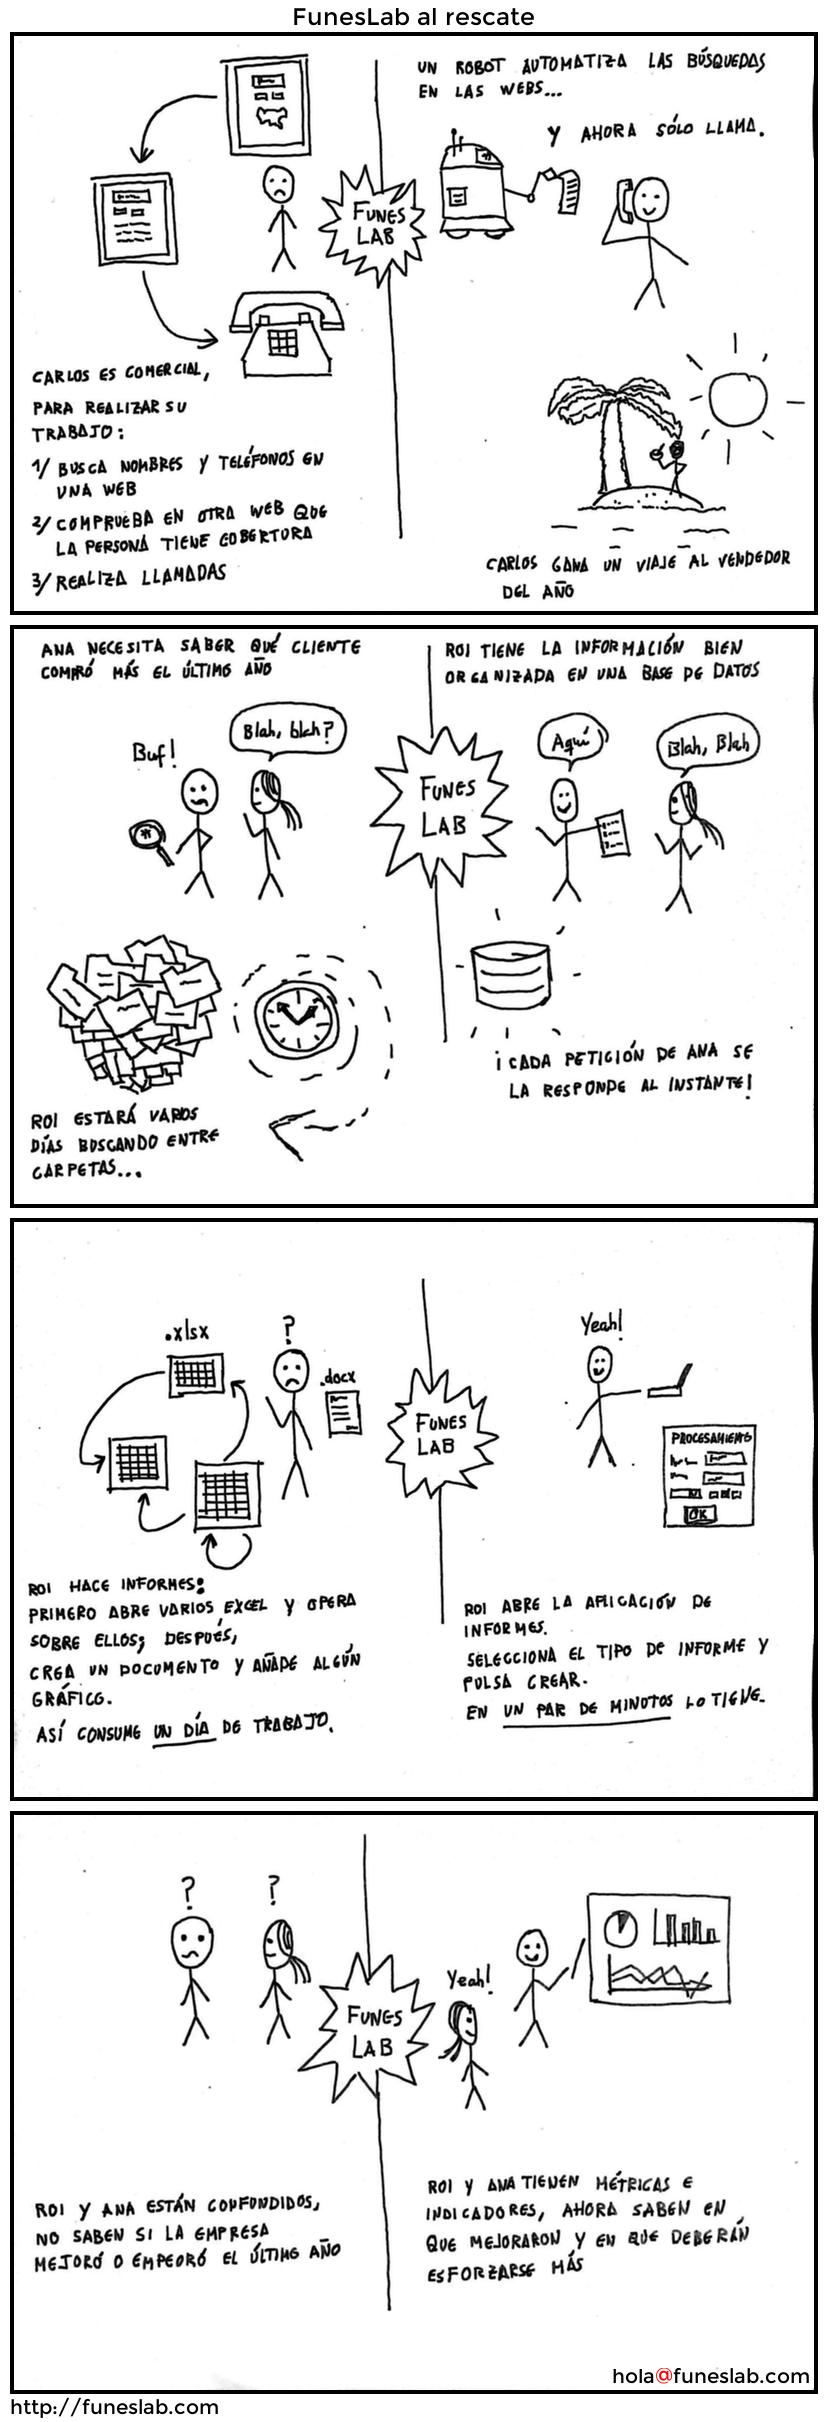 FunesLab al rescate
FUNES
LAB
CARLOS ES COMERCIAL,
PARA REALIZAR SU
TRABAJO:
1/ BUSCA NOMBRES Y TELÉFONOS EN
UNA WEB
2/ COMPRUEBA EN OTRA WEB QUE
LA PERSONA TIENE COBERTURA
3/ REALIZA LLAMADAS
UN ROBOT AUTOMATIZA LAS BÚSQUEDAS
EN LAS WEBS...
Y AHORA SÓLO LLAMA.
CARLOS GANA UN VIAJE AL VENDEDOR
DEL AÑO
ANA NECESITA SABER QUÉ CLIENTE
COMPRÓ MÁS EL ÚLTIMO AÑO
Buf!
Blah, blah?
FUNES
LAB
ROI ESTARÁ VARIOS
DÍAS BUSCANDO ENTRE
CARPETAS...
ROI TIENE LA INFORMACIÓN BIEN
ORGANIZADA EN UNA BASE DE DATOS
Aquí
Blah, Blah
¡CADA PETICIÓN DE ANA SE
LA RESPONDE AL INSTANTE!
.xlsx
?
.docx
FUNES
LAB
ROI HACE INFORMES:
PRIMERO ABRE VARIOS EXCEL Y OPERA
SOBRE ELLOS; DESPUÉS,
CREA UN DOCUMENTO Y AÑADE ALGÚN
GRÁFICO.
ASÍ CONSUME UN DÍA DE TRABAJO.
Yeah!
PROCESAMIENTO
OK
ROI ABRE LA APLICACIÓN DE
INFORMES.
SELECCIONA EL TIPO DE INFORME Y
PULSA CREAR.
EN UN PAR DE MINUTOS LO TIENE.
?
?
FUNES
LAB
ROI Y ANA ESTÁN CONFUNDIDOS,
NO SABEN SI LA EMPRESA
MEJORÓ O EMPEORÓ EL ÚLTIMO AÑO
Yeah!
ROI Y ANA TIENEN MÉTRICAS E
INDICADORES, AHORA SABEN EN
QUE MEJORARON Y EN QUE DEBERÁN
ESFORZARSE MÁS
hola@funeslab.com
http://funeslab.com